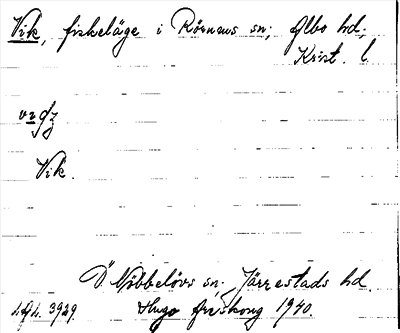 Vik, fiskeläge i Rörums sn, Albo hd,
Krist. l.
Vik.
Ö. Nöbbelövs sn, Järrestads hd.
3929. Hugo Areskoug 1940.